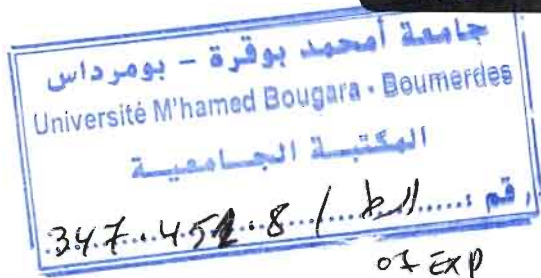 جامعة أمحمد بوقرة - بومرداس
Université M'hamed Bougara - Boumerdes
المكتبة الجامعية
رقم : 347.451.8 / الط
07 Exp